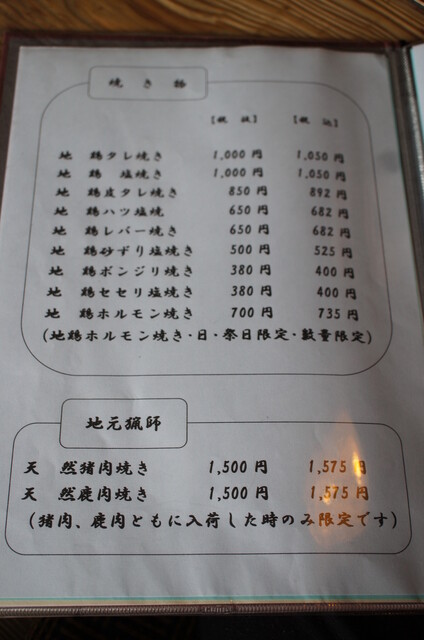 焼き物
【税抜】 【税込】
地 鶏タレ焼き 1,000円 1,050円
地 鶏 塩焼き 1,000円 1,050円
地 鶏皮タレ焼き 850円 892円
地 鶏ハツ塩焼 650円 682円
地 鶏レバー焼き 650円 682円
地 鶏砂ずり塩焼き 500円 525円
地 鶏ボンジリ焼き 380円 400円
地 鶏セセリ塩焼き 380円 400円
地 鶏ホルモン焼き 700円 735円
(地鶏ホルモン焼き・日・祭日限定・数量限定)
地元猟師
天 然猪肉焼き 1,500円 1,575円
天 然鹿肉焼き 1,500円 1,575円
(猪肉、鹿肉ともに入荷した時のみ限定です)